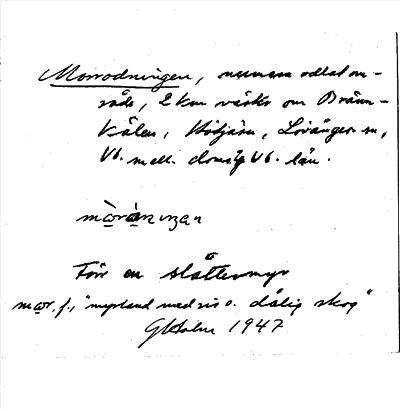 Morrodningen, numera odlat om-
råde, 2 km väster om Bränn-
kälen, Hötjärn, Lövånger sn,
Vb. mell. domsg Vb. län.
Förr en slåttermyr
mor, f., "myrland med ris o. dålig skog"
G Holm 1947